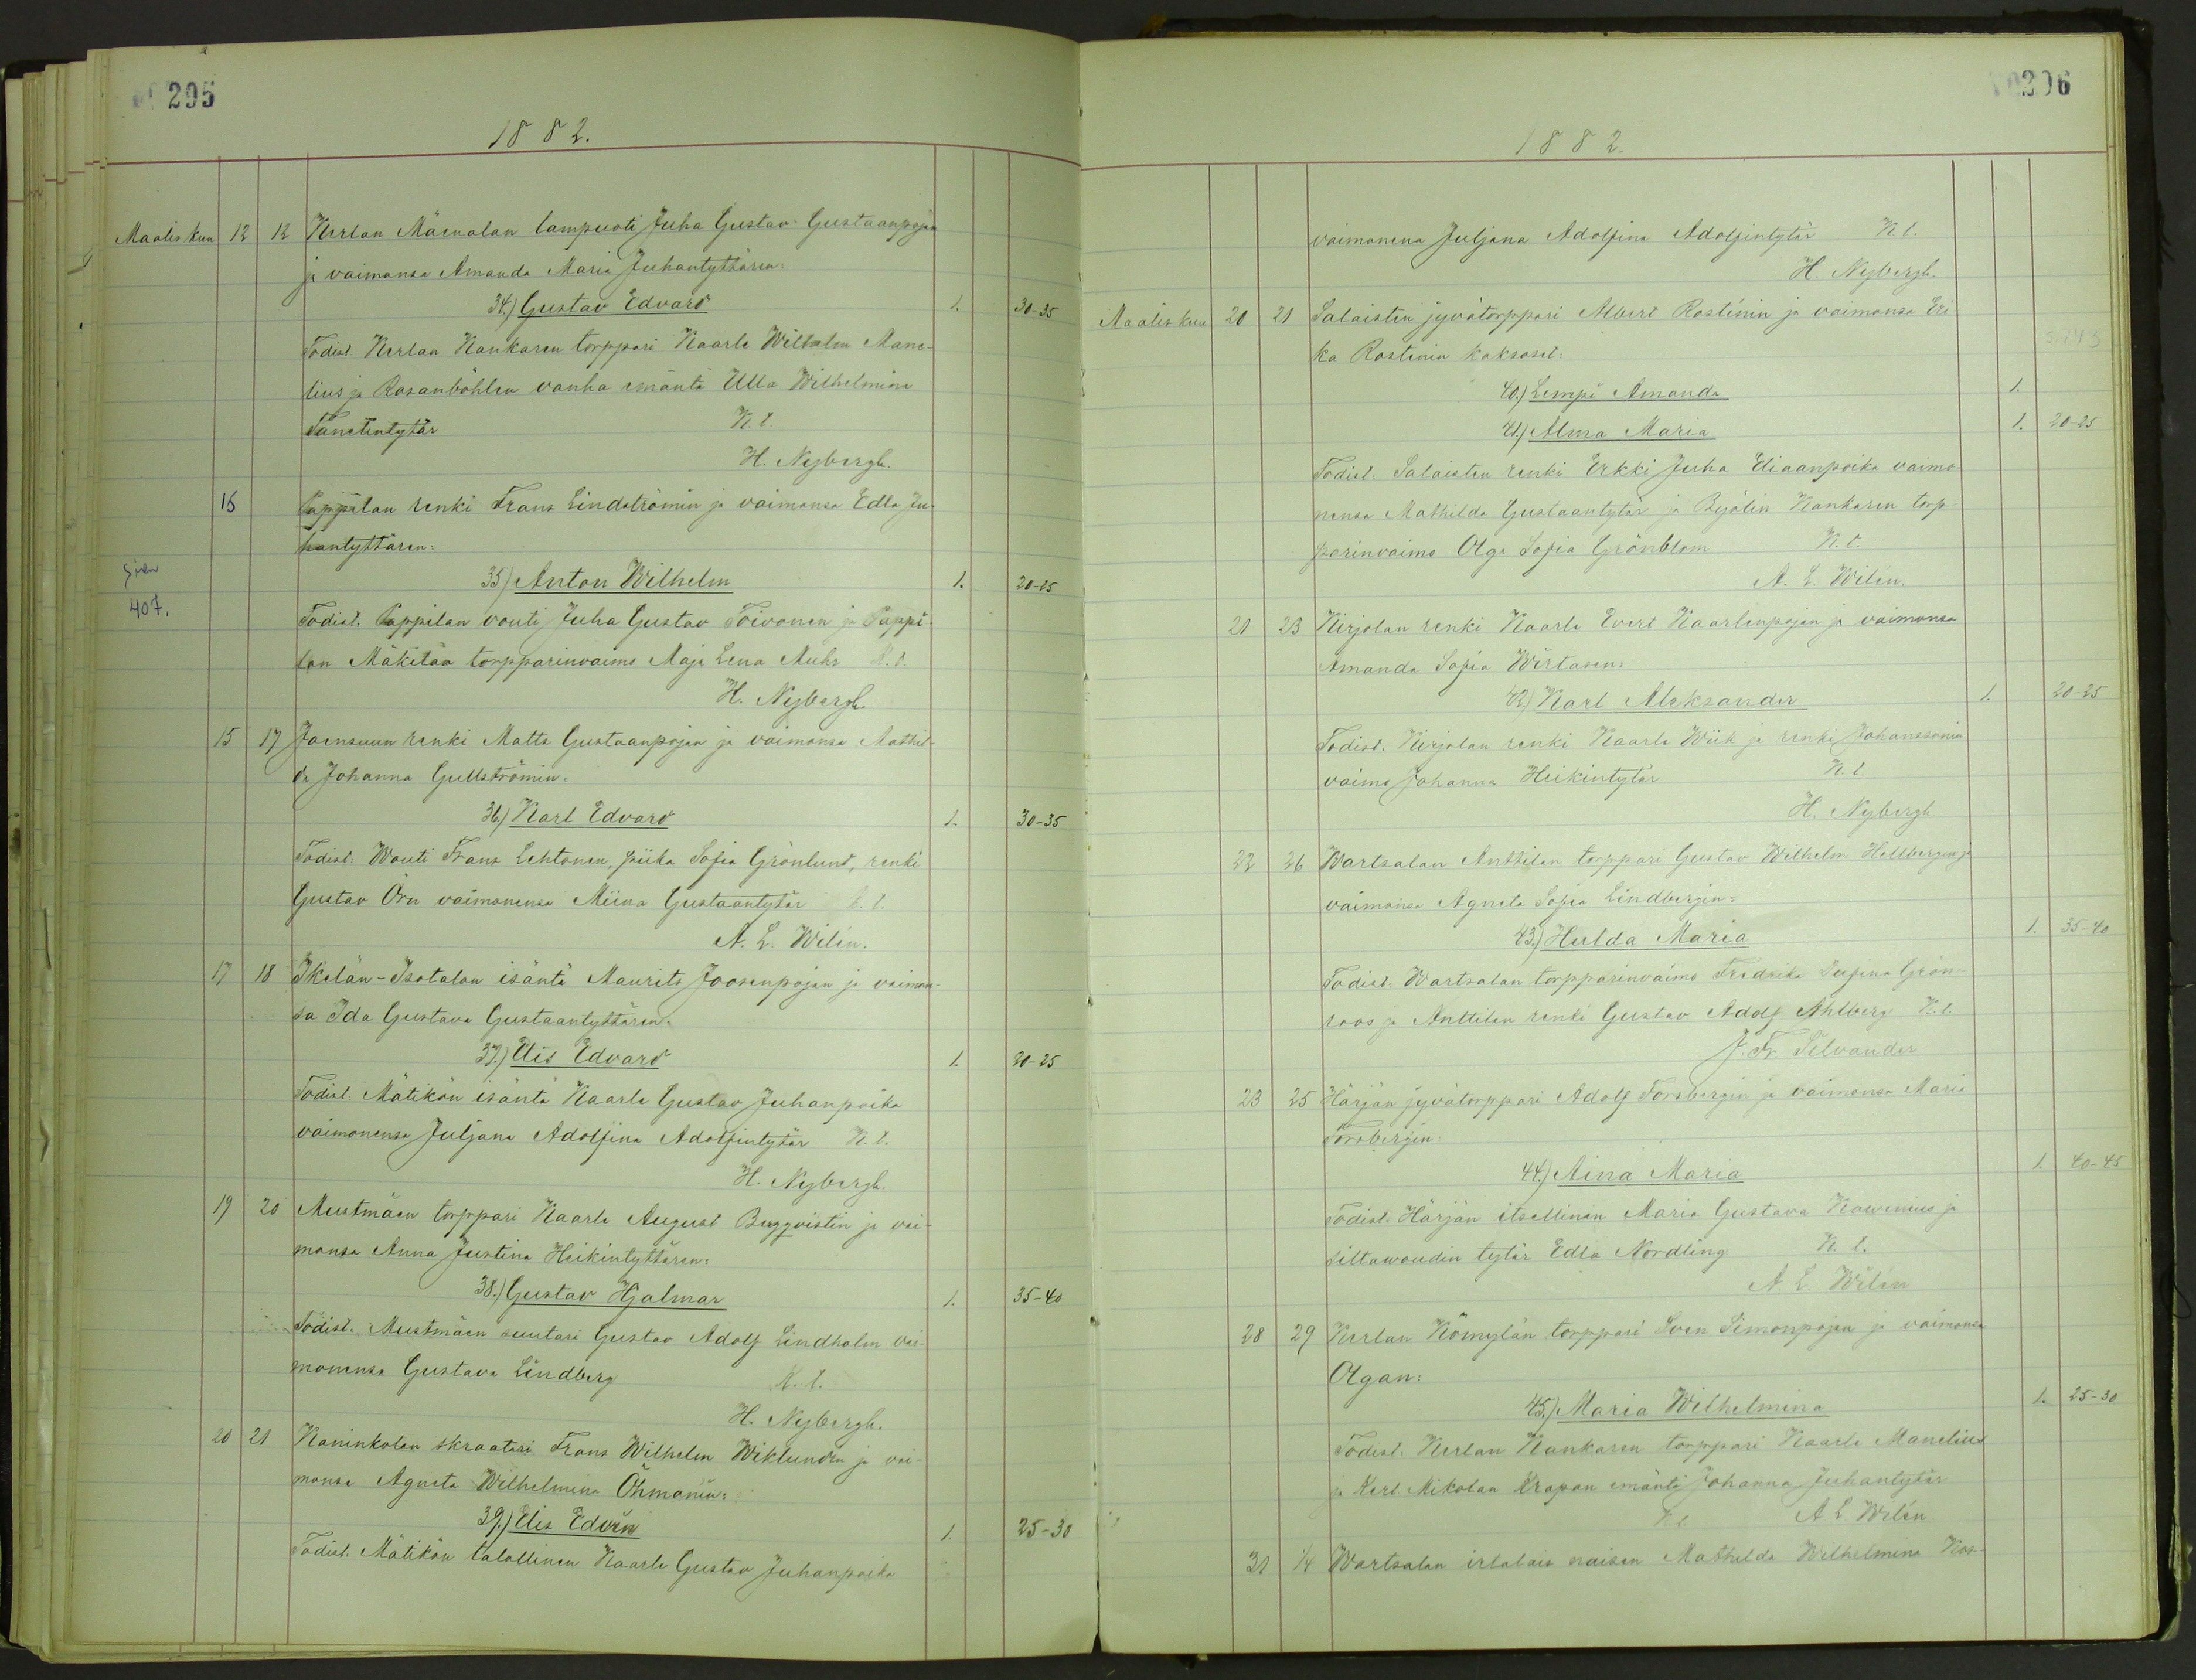 295
1882.
Maaliskuu 12 12 Kerlan Mäenalan lampuoti Juha Gustav Gustaanpojan
ja vaimonsa Amanda Maria Juhantyttären:
34.) Gustav Edvard 1. 30-35
Todist. Kerlan Kankaren torppari Kaarle Wilhelm Mane-
lius ja Rosanböhlen vanha emäntä Ulla Wilhelmina
K. t.
H. Nybergh.
15 Pappilan renki Frans Lindströmin ja vaimonsa Edla Ju-
hantyttären:
35) Anton Wilhelm 1. 20-25
407.
Todist. Pappilan vouti Juha Gustav Toivonen ja Pappi-
lan Mäkitän torpparinvaimo Maja Lena Muhr K. t.
H. Nybergh.
15 17 Joensuun renki Matts Gustaanpojan ja vaimonsa Mathil-
da Johanna Gullströmin:
36) Karl Edvard 1. 30-35
Todist. Wouti Frans Lehtonen, piika Sofia Grönlund, renki
Gustav Örn vaimonensa Miina Gustaantytär K. t.
A. L. Wilén.
17 18 Ikelän-Isotalon isäntä Maurits Joosenpojan ja vaimon-
sa Ida Gustava Gustaantyttären:
37.) Elis Edvard 1. 20-25
Todist. Mätikön isäntä Kaarle Gustav Juhanpoika
vaimonensa Juljana Adolfina Adolfintytär K. t.
H. Nybergh.
19 20 Mustmäen torppari Kaarle August Bergqvistin ja vai-
monsa Anna Justina Heikintyttären:
38.) Gustav Hjalmar 1. 35-40
Todist. Mustmäen suutari Gustav Adolf Lindholm vai-
monensa Gustava Lindberg K. t.
H. Nybergh.
20 21 Kaninkolan skraatari Frans Wilhelm Wiklundin ja vai-
monsa Agneta Wilhelmina Öhmanin:
39.) Elis Edvin 1. 25-30
Todist. Mätikön talollinen Kaarle Gustav Juhanpoika
296
1882.
vaimonena Juljana Adolfina Adolfintytär K. t.
H. Nybergh.
Maaliskuu 20 21 Salaisten jyvätorppari Albert Rostenin ja vaimonsa Eri-
ka Rostenin kaksoset:
40.) Lempi Amanda 1.
41.) Alma Maria 1. 20-25
Todist. Salaisten renki Erkki Juha Eliaanpoika vaimo-
nensa Mathilda Gustaantytär ja Byölin Kankaren torp-
parinvaimo Olga Sofia Grönblom K. t.
A. L. Wilén.
21 23 Kirjolan renki Kaarle Evert Kaarlenpojan ja vaimonsa
Amanda Sofia Wirtasen:
42) Karl Aleksander 1. 20-25
Todist. Kirjolan renki Kaarle Wiik ja renki Johanssonin
vaimo Johanna Heikintytär K. t.
H. Nybergh
22 26 Wartsalan Anttilan torppari Gustav Wilhelm Hellbergin ja
vaimonsa Agneta Sofia Lindbergin:
43.) Hulda Maria 1. 35-40
Todist. Wartsalan torpparinvaimo Fredrika Josefina Grön-
roos ja Anttilan renki Gustav Adolf Ahlberg K. t.
J. Fr. Selvander
23 25 Härjän jyvätorppari Adolf Forsbergin ja vaimonsa Maria
Forsbergin:
44.) Aina Maria 1. 40-45
Todist. Härjän itsellinen Maria Gustava Kavenius ja
siltawoudin tytär Edla Nordling K. t.
A. L. Wilén
28 29 Kerlan Kömylän torppari Sven Simonpojan ja vaimonsa
Olgan:
45.) Maria Wilhelmina 1. 25-30
Todist. Kerlan Kankaren torppari Kaarle Manelius
ja Kerl. Mikolan Krapan emäntä Johanna Juhantytär
K. t. A L Wilén
31 1/4 Wartsalan irtalais naisen Mathilda Wilhelmina Kos-